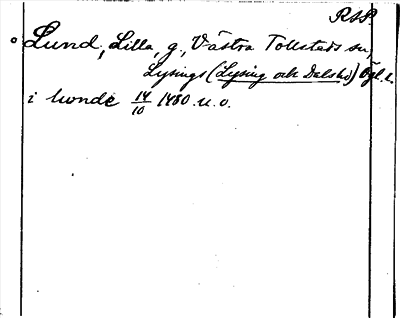 RAP.
Lund, Lilla, g., Västra Tollstads sn,
Lysings (Lysing och Dals hd) Ögl. l.
i Lunde 14/10 1480 u. o.